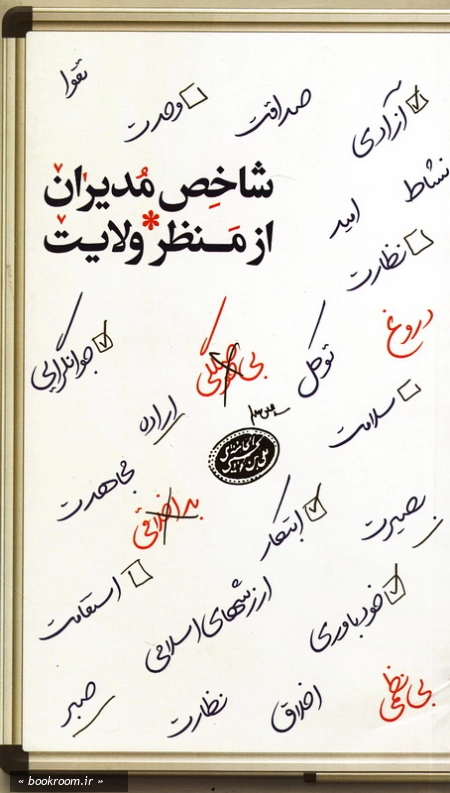 تقوا
وحدت
صداقت
آزادی
شاخِص مُدیران
از مَنظر ولایت
نشاط
امید
نظارت
دروغ
جوانگرایی
توکل
اراده
سلامت
مجاهدت
بداخلاقی
ابتکار
بصیرت
استقامت
ارزشهای اسلامی
خودباوری
صبر
نظارت
اخلاق
بی نظمی
« bookroom.ir »